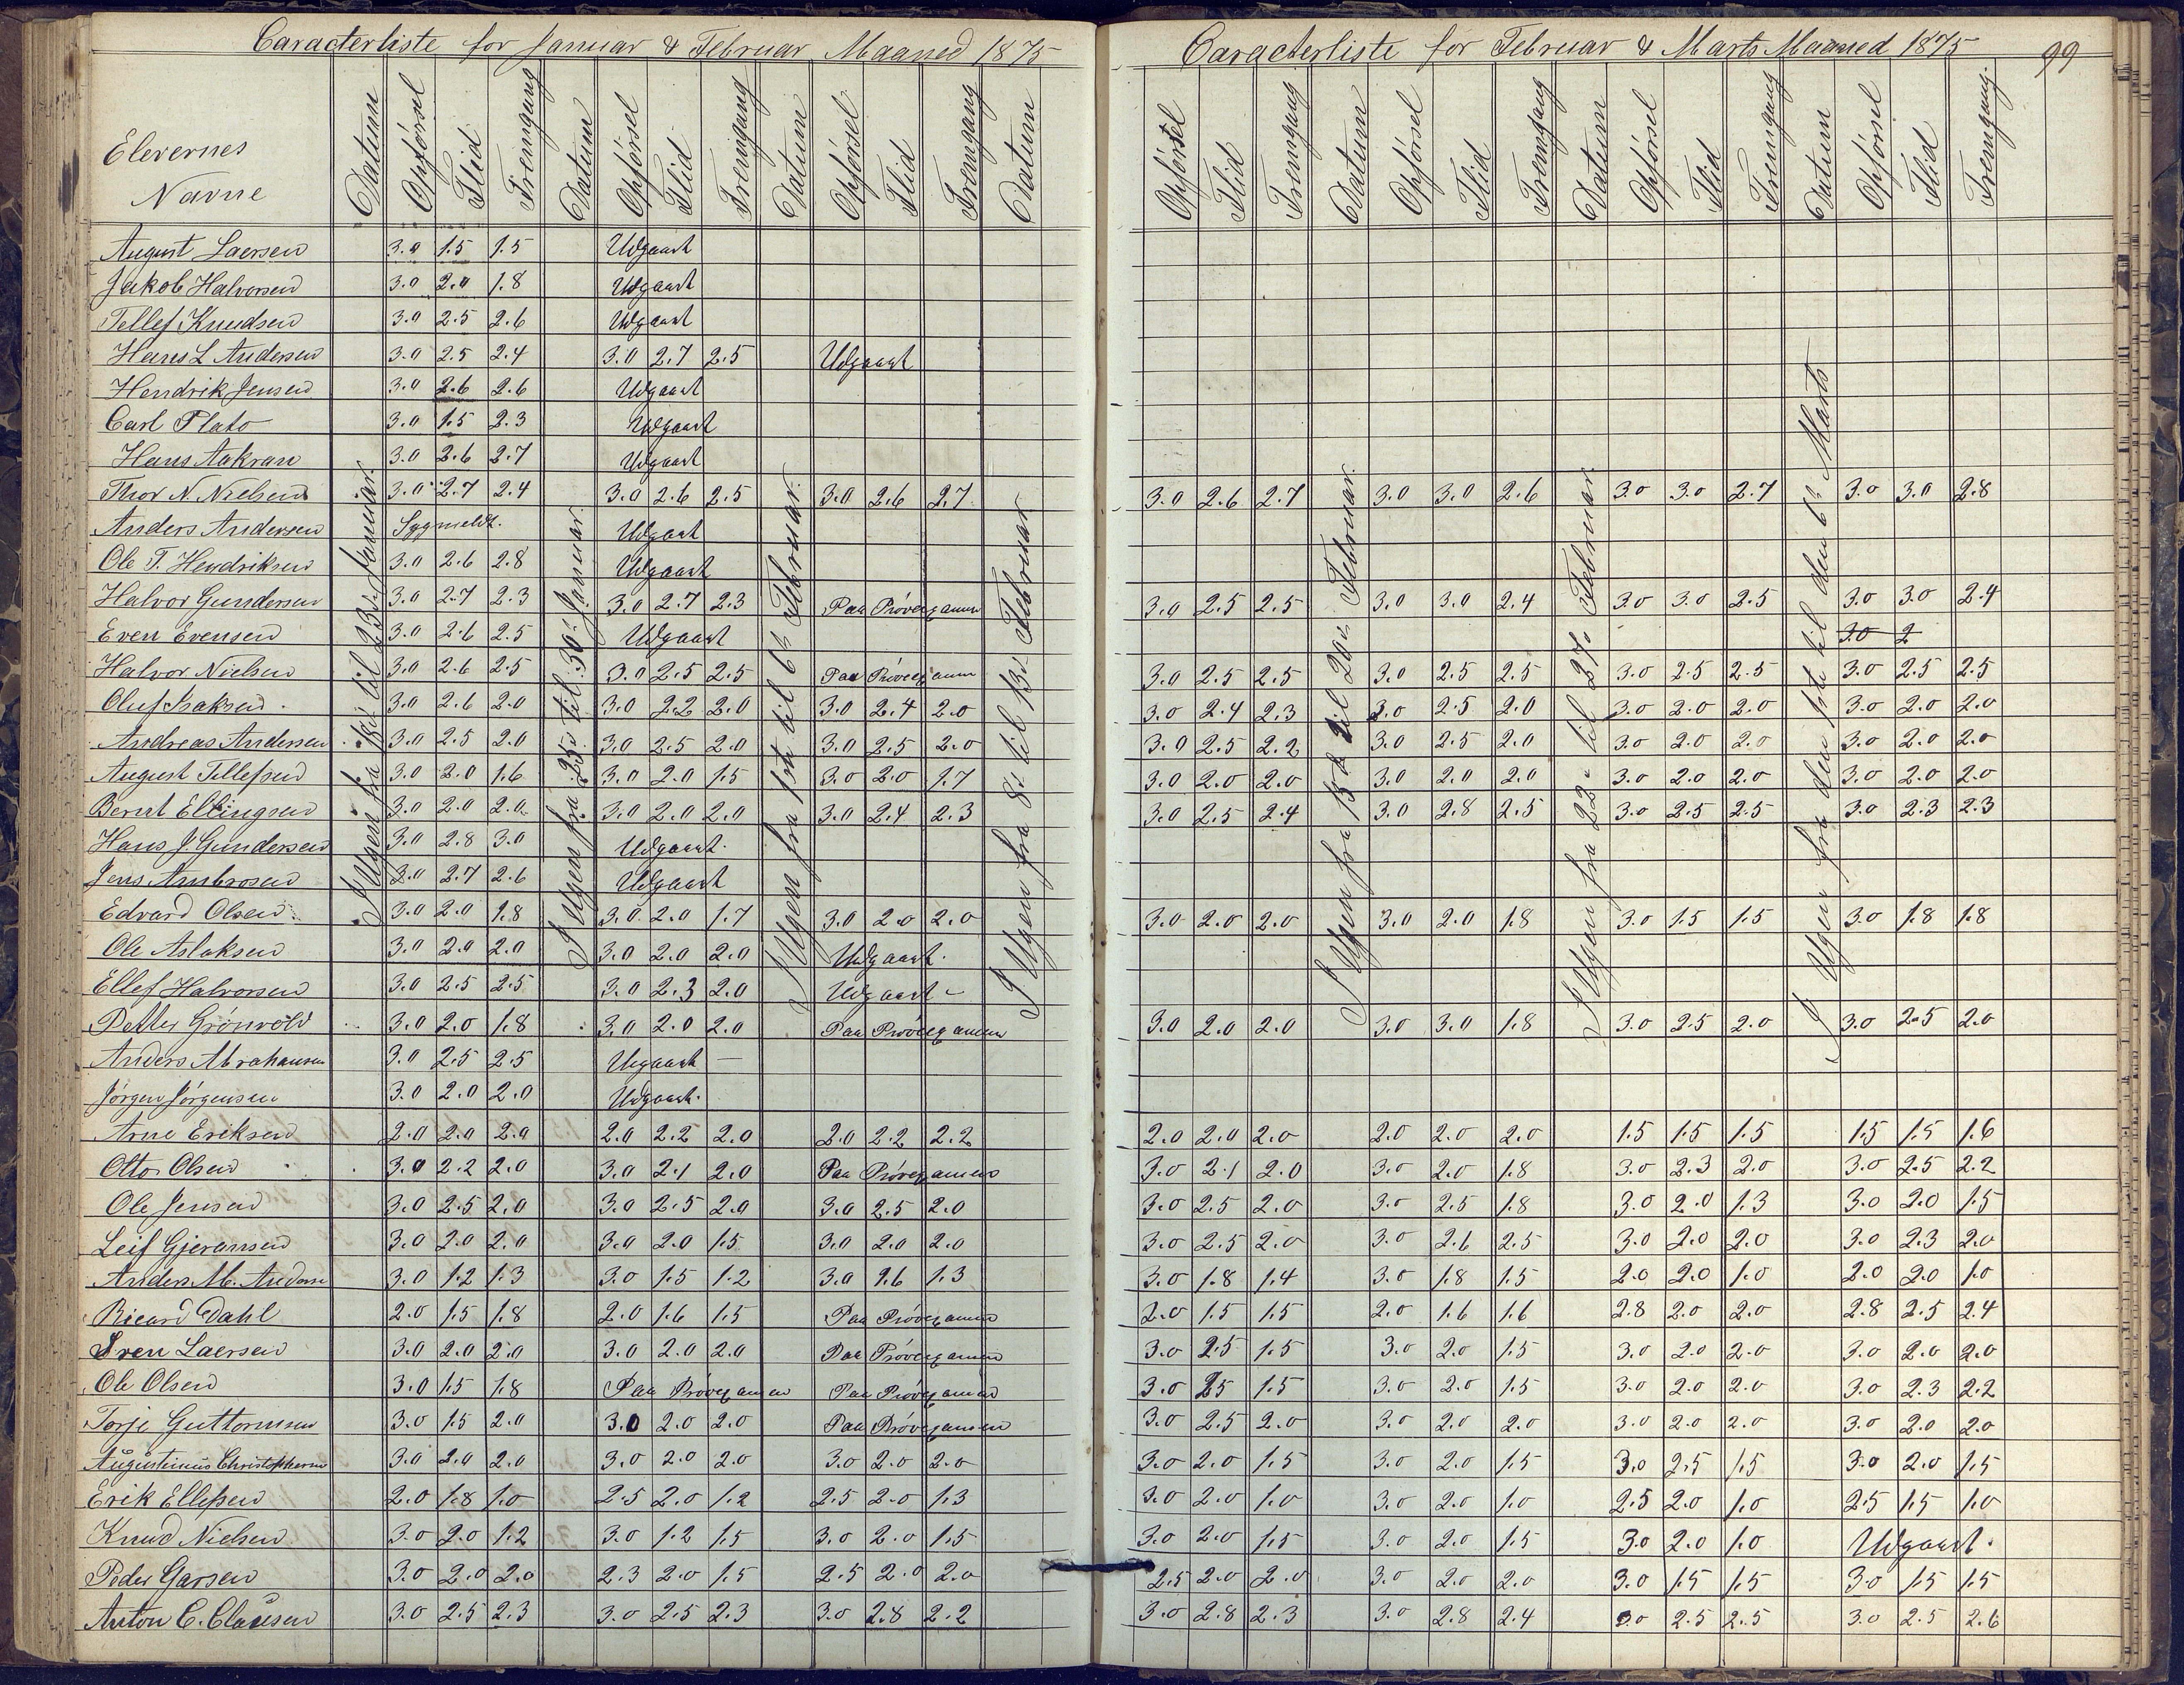 Caracterliste for Januar & Februar Maaned 1875
Caracterliste for Februar & Marts Maaned 1875 99
Elevernes Navne Datum Opførsel Flid Fremgang Datum Opførsel Flid Fremgang Datum Opførsel Flid Fremgang Datum Opførsel Flid Fremgang Datum Opførsel Flid Fremgang Datum Opførsel Flid Fremgang Datum Opførsel Flid Fremgang
I Ugen fra 18de til 23de Januar.
I Ugen fra 25de til 30te Januar.
I Ugen fra 1ste til 6te Februar.
I Ugen fra 8de til 13de Februar
I Ugen fra 15de til 20de Februar.
I Ugen fra 22de til 27de Februar.
I Ugen fra den 1ste til den 6te Marts
August Laersen 3.0 1.5 1.5 Udgaaet
Jakob Halvorsen 3.0 2.0 1.8 Udgaaet
Tellef Knudsen 3.0 2.5 2.6 Udgaaet
Hans L Andersen 3.0 2.5 2.4 3.0 2.7 2.5 Udgaaet
Hendrik Jensen 3.0 2.6 2.6 Udgaaet
Carl Plato 3.0 1.5 2.3 Udgaaet
Hans Aakran 3.0 2.6 2.7 Udgaaet
Thor N. Nielsen 3.0 2.7 2.4 3.0 2.6 2.5 3.0 2.6 2.7 3.0 2.6 2.7 3.0 3.0 2.6 3.0 3.0 2.7 3.0 3.0 2.8
Anders Andersen Sygmeldt. Udgaaet
Ole T. Hendriksen 3.0 2.6 2.8 Udgaaet
Halvor Gundersen 3.0 2.7 2.3 3.0 2.7 2.3 Paa Prøvexamen 3.0 2.5 2.5 3.0 3.0 2.4 3.0 3.0 2.5 3.0 3.0 2.4
Even Evensen 3.0 2.6 2.5 Udgaaet 3.0 2
Halvor Nielsen 3.0 2.6 2.5 3.0 2.5 2.5 Paa Prøvexamen 3.0 2.5 2.5 3.0 2.5 2.5 3.0 2.5 2.5 3.0 2.5 2.5
Oluf Isaksen 3.0 2.6 2.0 3.0 2.2 2.0 3.0 2.4 2.0 3.0 2.4 2.3 3.0 2.5 2.0 3.0 2.0 2.0 3.0 2.0 2.0
Andreas Andersen 3.0 2.5 2.0 3.0 2.5 2.0 3.0 2.5 2.0 3.0 2.5 2.2 3.0 2.5 2.0 3.0 2.0 2.0 3.0 2.0 2.0
August Tellefsen 3.0 2.0 1.6 3.0 2.0 1.5 3.0 2.0 1.7 3.0 2.0 2.0 3.0 2.0 2.0 3.0 2.0 2.0 3.0 2.0 2.0
Bernt Ellingsen 3.0 2.0 2.0 3.0 2.0 2.0 3.0 2.4 2.3 3.0 2.5 2.4 3.0 2.8 2.5 3.0 2.5 2.5 3.0 2.3 2.3
Hans J. Gundersen 3.0 2.8 3.0 Udgaaet.
Jens Ambrosen 3.0 2.7 2.6 Udgaaet
Edvard Olsen 3.0 2.0 1.8 3.0 2.0 1.7 3.0 2.0 2.0 3.0 2.0 2.0 3.0 2.0 1.8 3.0 1.5 1.5 3.0 1.8 1.8
Ole Aslaksen 3.0 2.0 2.0 3.0 2.0 2.0 Udgaaet.
Ellef Halvorsen 3.0 2.5 2.5 3.0 2.3 2.0 Udgaaet -
Petter Grønvold 3.0 2.0 1.8 3.0 2.0 2.0 Paa Prøvexamen 3.0 2.0 2.0 3.0 3.0 1.8 3.0 2.5 2.0 3.0 2.5 2.0
Anders Abrahamsen 3.0 2.5 2.5 Udgaaet -
Jørgen Jørgensen 3.0 2.0 2.0 Udgaaet.
Arne Eriksen 2.0 2.0 2.0 2.0 2.2 2.0 2.0 2.2 2.2 2.0 2.0 2.0 2.0 2.0 2.0 1.5 1.5 1.5 1.5 1.5 1.6
Otto Olsen 3.0 2.2 2.0 3.0 2.1 2.0 Paa Prøvexamen 3.0 2.1 2.0 3.0 2.0 1.8 3.0 2.3 2.0 3.0 2.5 2.2
Ole Jensen 3.0 2.5 2.0 3.0 2.5 2.0 3.0 2.5 2.0 3.0 2.5 2.0 3.0 2.5 1.8 3.0 2.0 1.3 3.0 2.0 1.5
Leif Gjeransen 3.0 2.0 2.0 3.0 2.0 1.5 3.0 2.0 2.0 3.0 2.5 2.0 3.0 2.6 2.5 3.0 2.0 2.0 3.0 2.3 2.0
Anders M. Anderse 3.0 1.2 1.3 3.0 1.5 1.2 3.0 1.6 1.3 3.0 1.8 1.4 3.0 1.8 1.5 2.0 2.0 1.0 2.0 2.0 1.0
Ricard Dahl 2.0 1.5 1.8 2.0 1.6 1.5 Paa Prøvexamen 2.0 1.5 1.5 2.0 1.6 1.6 2.8 2.0 2.0 2.8 2.5 2.4
Sven Laersen 3.0 2.0 2.0 3.0 2.0 2.0 Paa Prøvexamen 3.0 2.5 1.5 3.0 2.0 1.5 3.0 2.0 2.0 3.0 2.0 2.0
Ole Olsen 3.0 1.5 1.8 Paa Prøvexamen Paa Prøvexamen 3.0 2.5 1.5 3.0 2.0 1.5 3.0 2.0 2.0 3.0 2.3 2.2
Torje Guttormsen 3.0 1.5 2.0 3.0 2.0 2.0 Paa Prøvexamen 3.0 2.5 2.0 3.0 2.0 2.0 3.0 2.0 2.0 3.0 2.0 2.0
Augustinus Christophersen 3.0 2.0 2.0 3.0 2.0 2.0 3.0 2.0 2.0 3.0 2.0 1.5 3.0 2.0 1.5 3.0 2.5 1.5 3.0 2.0 1.5
Erik Ellefsen 2.0 1.8 1.0 2.5 2.0 1.2 2.5 2.0 1.3 3.0 2.0 1.0 3.0 2.0 1.0 2.5 2.0 1.0 2.5 1.5 1.0
Knud Nielsen 3.0 2.0 1.2 3.0 1.2 1.5 3.0 2.0 1.5 3.0 2.0 1.5 3.0 2.0 1.5 3.0 2.0 1.0 Udgaaet.
Peder Garsen 3.0 2.0 2.0 2.3 2.0 1.5 2.5 2.0 2.0 2.5 2.0 2.0 3.0 2.0 2.0 3.0 1.5 1.5 3.0 1.5 1.5
Anton C. Clausen 3.0 2.5 2.3 3.0 2.5 2.3 3.0 2.8 2.2 3.0 2.8 2.3 3.0 2.8 2.4 3.0 2.5 2.5 3.0 2.5 2.6